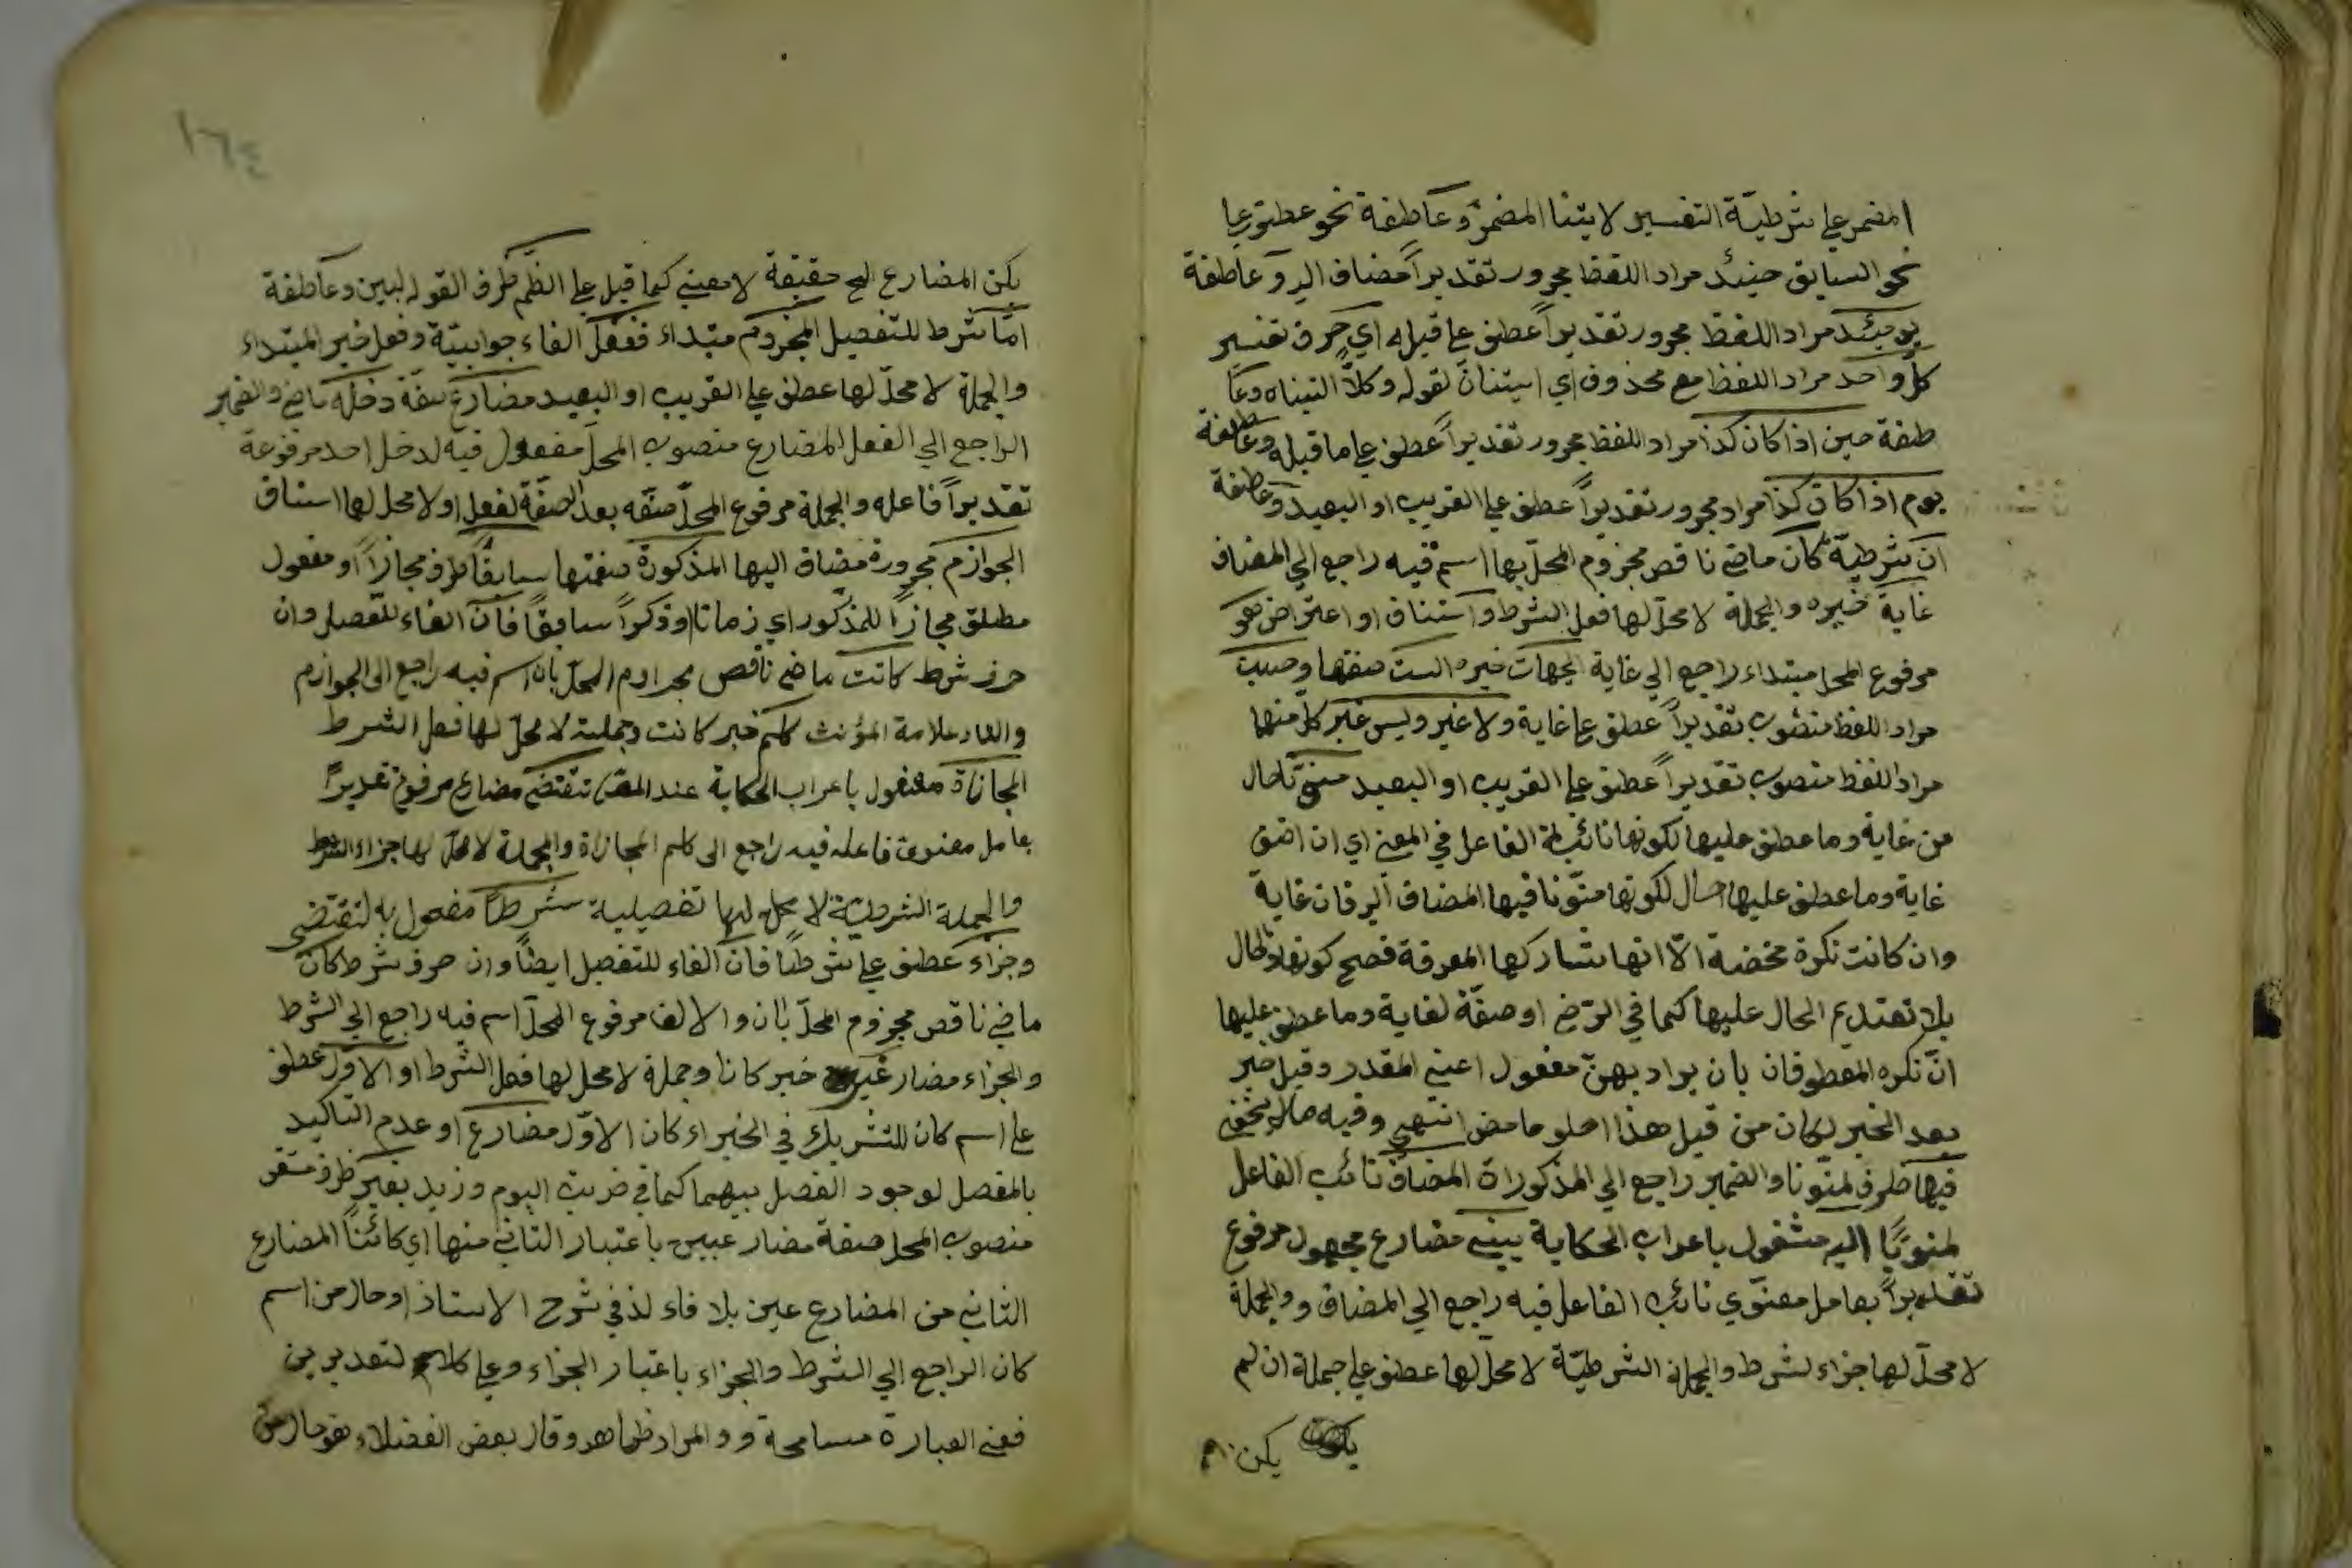 المضمر علي شرطية التفسير لا يتنا المضمر وعاطفة نحو عطف علي
نحو السابق حينئذ مراد اللفظ مجرور تقديراً مضاف اليه وعاطفة
يومئذ مراد اللفظ مجرور تقديراً عطف علي قبله اي حرف تفسير
كل واحد مراد اللفظ مع محذوف اي استيناف لقوله وكلاً اتيناه وعا
طفة حين اذا كان كذا مراد اللفظ مجرور تقديراً عطف علي ما قبله وعاطفة
يوم اذا كان كذا مراد مجرور تقديراً عطف علي القريب او البعيد وعاطفة
ان شرطية كان ماضي ناقص مجزوم المحل بها اسم فيه راجع الي المضاف
غاية خبره والجملة لا محل لها فعل الشرط واستناف او اعتراض هو
مرفوع المحل مبتداء راجع الي غاية الجهات خبره الست صفتها وحسب
مراد اللفظ منصوب تقديراً عطف علي غاية ولا غير وليس غير كل منها
مراد اللفظ منصوب تقديراً عطف علي القريب او البعيد حال
من غاية وما عطف عليها لكونها نائبة الفاعل في المعني اي ان اضف
غاية وما عطف عليها حال لكونها منونا فيها المضاف اليه فان غاية
وان كانت نكرة محضة الا انها تشاركها المعرفة فصح كونها ذا الحال
بلا تقديم الحال عليها كما في الرضي او صفة لغاية وما عطف عليها
ان نكره المعطوفان بان يراد بهن مفعول اعني المقدر وقيل خبر
بعد الخبر لكان من قبيل هذا حلو حامض انتهي وفيه ما لا يخفي
فيها ظرف لمنونا والضمير راجع الي المذكورات المضاف نائب الفاعل
لمنويا اليه مشغول باعراب الحكاية يبني مضارع مجهول مرفوع
تقديراً بعامل معنوي نائب الفاعل فيه راجع الي المضاف والجملة
لا محل لها جزاء لشرط والجملة الشرطية لا محل لها عطف علي جملة ان لم
يكن
١٦٤
يكن المضارع حقيقة لا معني كما قيل علي الظلم ظرف القوله لبين وعاطفة
اما شرط للتفصيل المجزوم مبتداء ففعل الفاء جوابية وفعل خبر المبتداء
والجملة لا محل لها عطف علي القريب او البعيد مضارع صفة دخله ماضي والضمير
الراجع الي الفعل المضارع منصوب المحل مفعول فيه لدخل احد مرفوعة
تقديراً فاعله والجملة مرفوع المحل صفة بعد الصفة لفعل او لا محل لها استناف
الجوازم مجرورة مضاف اليها المذكورة صفتها سابقاً ظرف مجازاً او مفعول
مطلق مجازاً للمذكور اي زمانا او ذكراً سابقاً فان الفاء للتفصيل وان
حرف شرط كانت ماضي ناقص مجزوم المحل بان اسم فيه راجع الي الجوازم
والتاء علامة المؤنث كلم خبر كانت وجملته لا محل لها فعل الشرط
المجازاة مشغول باعراب الحكاية عند المص تقتضي مضارع مرفوع تقديراً
بعامل معنوي فاعله فيه راجع الي كلم المجازاة والجملة لا محل لها جزاء الشرط
والجملة الشرطية لا محل لها تفصيلية شرطاً مفعول به لتقتضي
وجزاء عطف علي شرطاً فان الفاء للتفصيل ايضاً وان حرف شرط كان
ماضي ناقص مجزوم المحل بان والالف مرفوع المحل اسم فيه راجع الي الشرط
والجزاء مضارعين خبر كانا وجملة لا محل لها فعل الشرط او الاول عطف
علي اسم كان للتشريك في الخبر اي كان الاول مضارع او عدم التاكيد
بالمفصل لوجود الفصل بينهما كما في ضربت اليوم وزيد بغير ظرف مستقر
منصوب المحل صفة مضارعين باعتبار الثاني منها اي كائناً المضارع
الثاني من المضارعين بلا فاء لذ في شرح الاستاذ او حال من اسم
كان الراجع الي الشرط والجزاء باعتبار الجزاء وعلي كلا التقديرين
ففي العبارة مسامحة والمراد ظاهر وقال بعض الفضلاء هو حال من